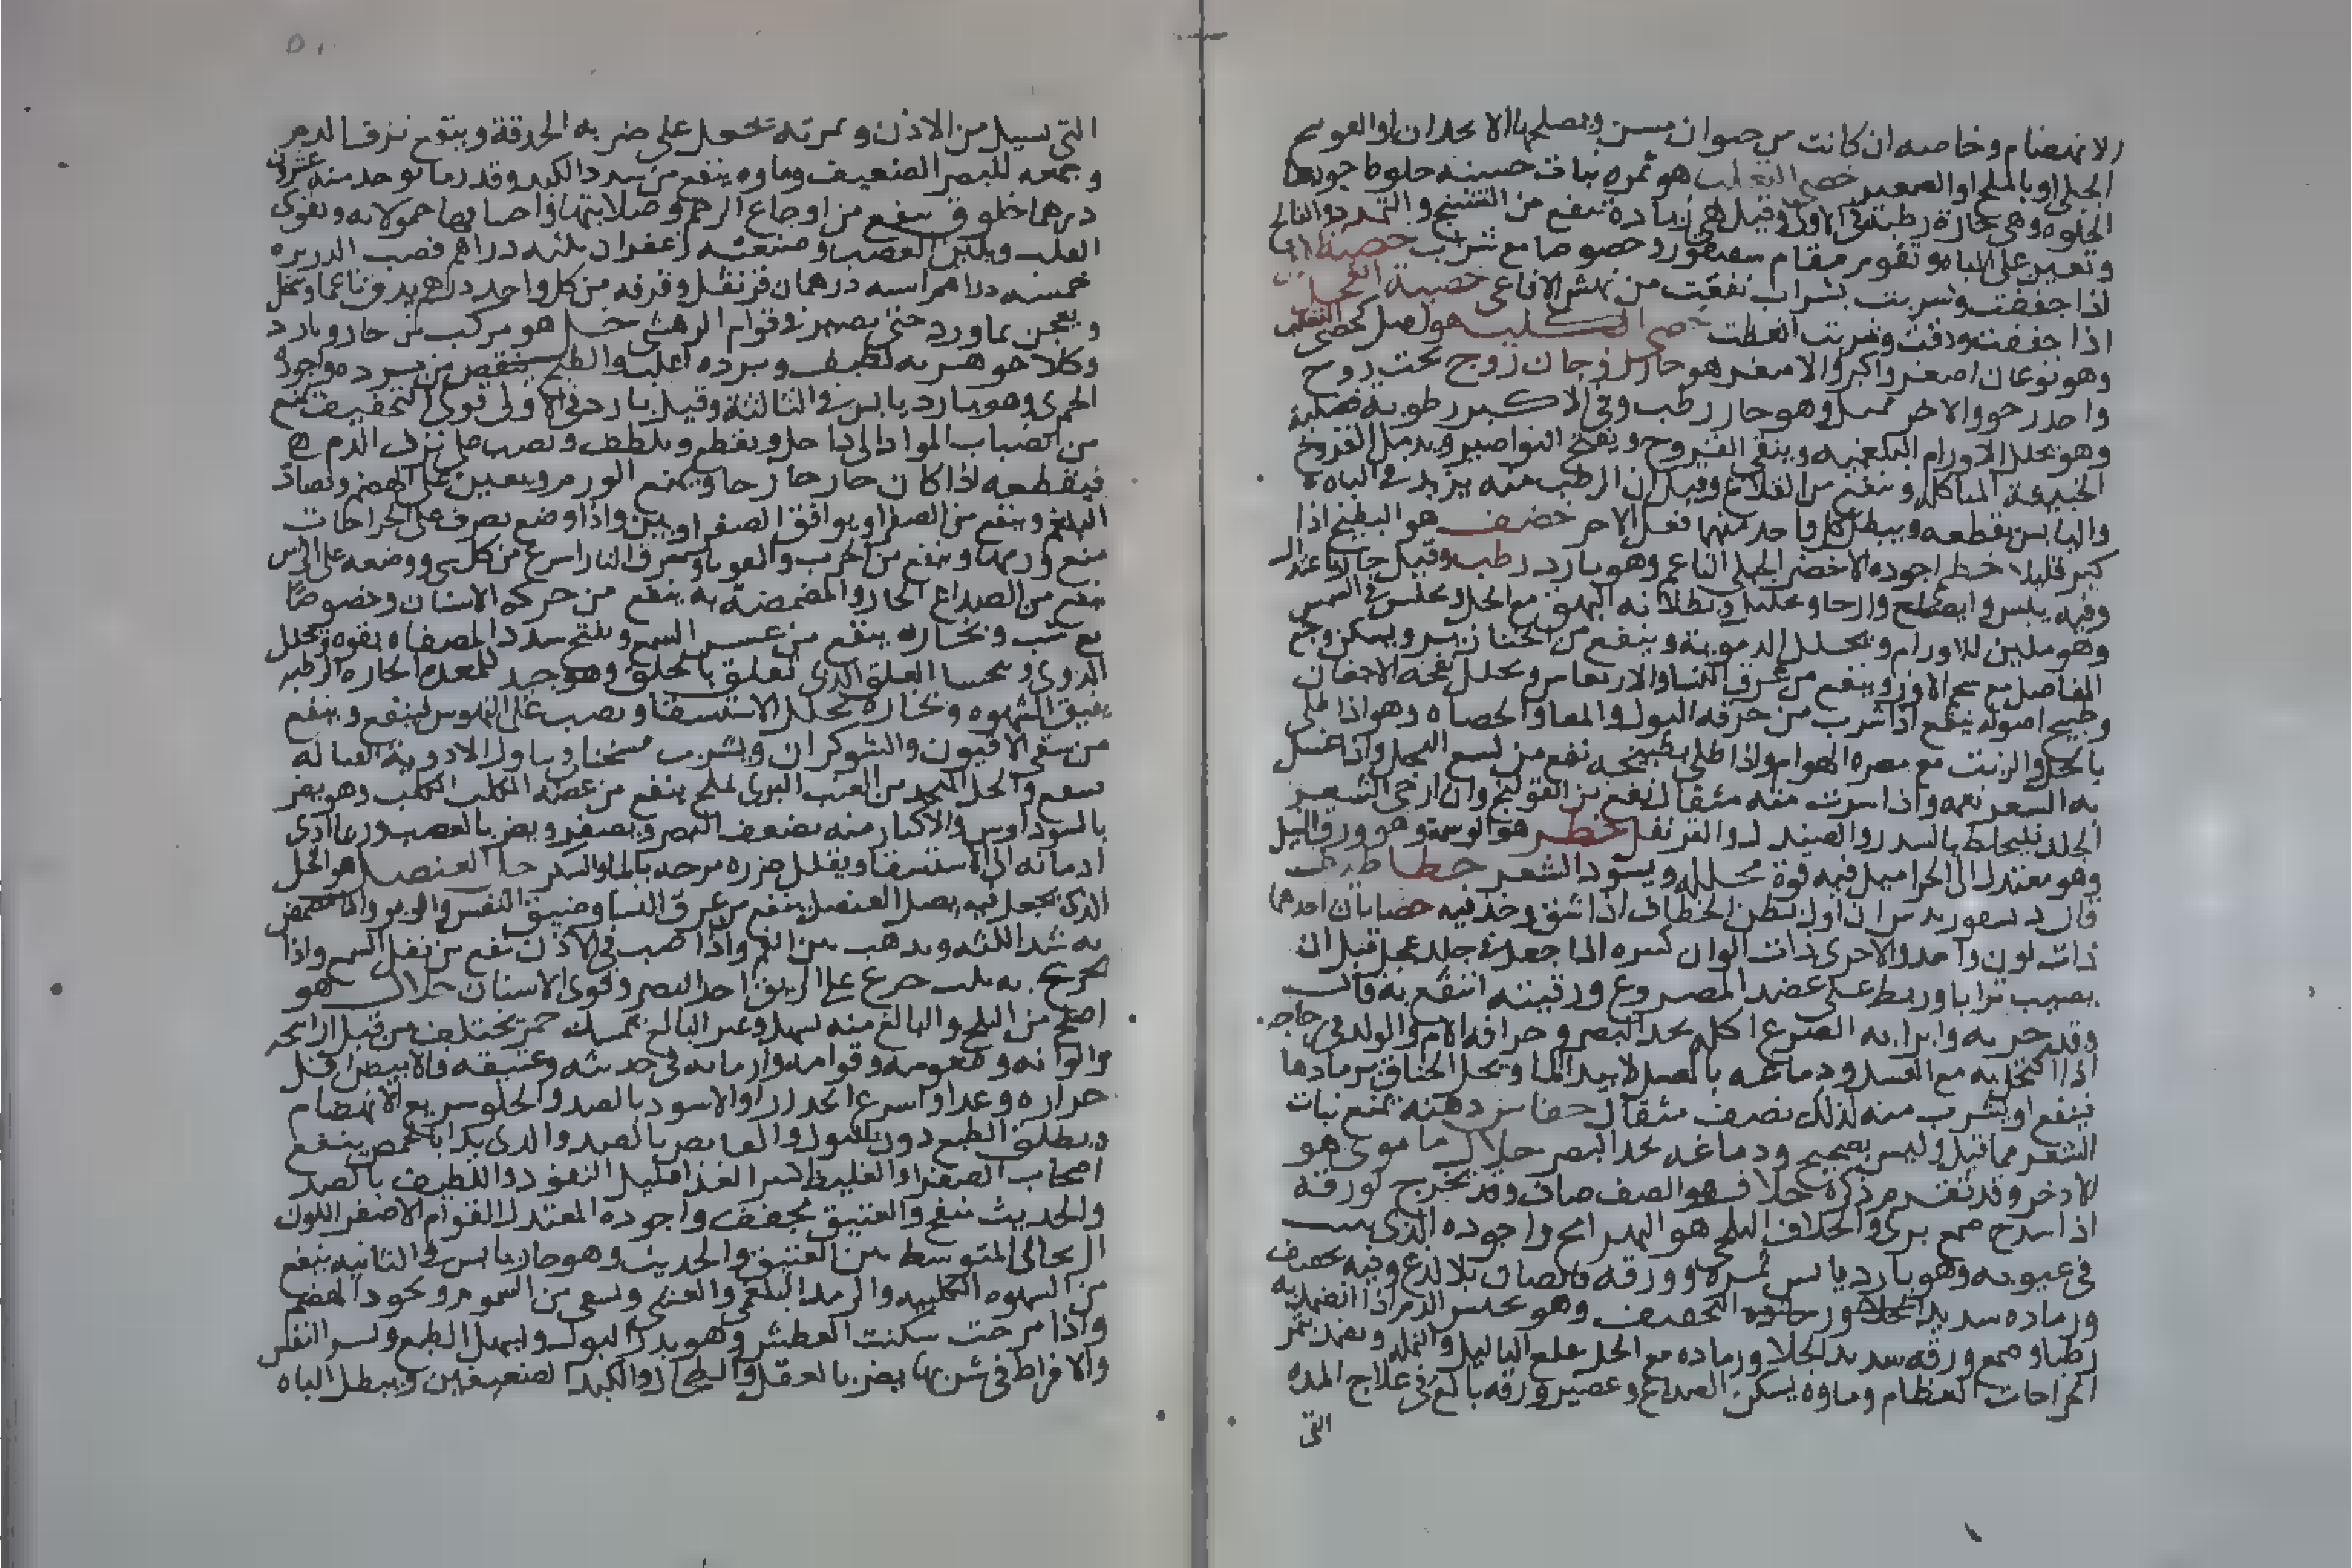 الانهضام وخاصه ان كانت من حيوان مسن ويصلحها الانجدان او الفوتنج
الجبلي او بالملح او الصعتر خصي الثعلب هو ثمره نبات حسنه حلوه
الحلوه وهي حارة رطبة في الاولى وقيل هي زياده تنفع من التشنج والتمدد والفالج
وتعين على الباه وتقوم مقام سقنقور وخصوصا مع شراب خصية
اذا جففت وشربت بشراب نفعت من نهش الافاعي خصية
اذا جففت ودقت وشربت انعظت خصي الكلب هو اصل كخصي الثعلب
وهو نوعان اصغر واكبر والاصغر هو زوجان زوج تحت زوج
واحد رخو والاخر ممتلي وهو حار رطب وفي الاكبر رطوبة فضلية
وهو يحلل الاورام البلغمية وينقي القروح ويفتح النواصير ويدمل القروح
الخبيثة المتاكله وينفع من القلاع وقيل ان الرطب منه يزيد في الباه
واليابس يقطعه ويبطل كل واحد منهما فعل الاخر خضف هو البطيخ اذا
كبر قليلا خطمي اجوده الاخضر الجبلي الناعم وهو بارد رطب وقيل حار باعتدال
وفيه يبس وانضاج وارخا وتحليل ويطلا به البهق مع الخل ويجلس في الشمس
وهو ملين للاورام ويحلل الدموية وينفع من الخنازير ويسكن وجع
المفاصل مع شحم الاوز وينفع من عرق النسا والارتعاش ويحلل نفخة الاجفان
وطبيخ اصوله ينفع اذا شرب من حرقة البول والمعا والحصاه وهو اذا طلي
بالخل والزيت منع مضرة الهوام واذا طلي بطبيخه نفع من لسع النحل واذا غسل
به الشعر نعمه واذا شرب منه مثقال نفع من القولنج وان ارخى الشعر
الجلد فليخلط بالسدر والصندل والقرنفل خطر هو الوسمة وهو ورق النيل
وهو معتدل الى الحرا ميل فيه قوة محللة ويسود الشعر خطا طيف
قال ديسقوريدس ان اول بطن الخطاف اذا شق وجد فيه حصاتان احدهما
ذات لون واحد والاخرى ذات الوان كثيره اذا جعلت في جلد عجل قبل ان
يصيب ترابا وربط على عضد المصروع ورقبته انتفع به قال
وقد جربه وابرا به الصرع اكله يحد البصر وحراقة الام والولد في زجاجه
اذا اكتحل به مع العسل ودماغه بالعسل لابتدا الماء ويحلل الخناق برمادها
فينفع او يشرب منه لذلك نصف مثقال خفاش دهنه يمنع نبات
الشعر مما قيل وليس بصحيح ودماغه يحد البصر خلال ماموني هو
الاذخر وقد تقدم ذكره خلاف هو الصفصاف وقد يخرج كورقه
اذا شدخ صمغ بري والخلاف البلخي هو البهرامج واجوده الذي ينبت
في عيونه وهو بارد يابس ثمرة وورقه قابضان بلا لذع وفيه تجفيف
ورماده شديد الجلا ورماده التجفيف وهو يحبس الدم اذا تضمد به
رطبا وصمغ ورقه شديد الجلا ورماده مع الخل يقلع الثاليل والنمله ويضمد بثمر
الجراحات العظام وماوه يسكن الصداع وعصير ورقه بالغ في علاج المده
التي
التي تسيل من الاذن وثمرته تجعل على ضربه الحدقة وينفع نزف الدم
وصمغه للبصر الضعيف وماوه ينفع من سدد الكبد وقدر ما يوخذ منه عشرون
درهما خلوق ينفع من اوجاع الرحم وصلابتها واصابها حمولا به ويقوي
القلب ويلين العصب وصنعته زعفران ثلثه دراهم قصب الذريره
خمسه دراهم اشنه درهمان قرنفل وقرفه من كل واحد درهم يدق ناعما وينخل
ويعجن بماورد حتى يصير في قوام الرهشي خل هو مركب من حار وبارد
وكلا جوهريه لطيف وبرده اغلب والطبخ ينقص من برده واجوده
الخمري وهو بارد يابس في الثالثة وقيل بارد في الاولى قوي التجفيف يمنع
من انصباب المواد الى داخل ويقطع ويلطف ويصب على نزف الدم
فيقطعه اذا كان خارجا رحا ويمنع الورم ويعين على الهضم ويضاد
البلغم وينفع من الصفرا ويوافق الصفراويين واذا وضع بصوف على الجراحات
منع ورمها وينفع من الجرب والقوبا وحرق النار اسرع من كل شي ووضعه على الراس
ينفع من الصداع الحار والمضمضة به ينفع من حركة الاسنان وخصوصا
مع شب وبخاره ينفع من عسر السمع ويفتح سدد المصفاه بقوه ويحلل
الدوي ويحسا للعلق الذي تعلق بالحلق وهو جيد للمعدة الحارة الرطبه
يفيق الشهوه وبخاره يحلل الاستسقا ويصب على النهوش فينفع وينفع
من سقي الافيون والشوكران ويشرب مسخنا وياول الادوية القتاله
ينفع والخل المتخذ من العنب البري بملح ينفع من عضة الكلب الكلب وهو يضر
بالسوداويين والاكثار منه يضعف البصر ويصفر ويضر بالعصب وربما ادى
ادمانه الى الاستسقا ويقلل ضرره مزجه بالماء والسكر خل العنصل هو الخل
الذي يجعل فيه بصل العنصل ينفع من عرق النسا وضيق النفس والربو والمضمضة
به تشد اللثه ويذهب نتن الفم واذا صب في الاذن نفع من ثقل السمع واذا
تجرع به ثلث جرع على الريق احد البصر وقوى الاسنان خلال هو
اصلح من البلح والبالغ منه يسهل وغير البالغ يمسك خمر تختلف من قبل الرايحه
والوانه وطعومه وقوامه وازمانه في حدثه وعتيقه فالابيض اقل
حراره وغذا واسرع انحدارا والاسود بالضد والحلو سريع الانهضام
ويطلق الطبع دون البول والقابض بالضد والذي يدا بالحمص ينفع
اصحاب الصفرا والغليظ كثير الغذا قليل النفوذ واللطيف بالضد
والحديث منفخ والعتيق مجفف واجوده المعتدل القوام الاصفر اللون
الريحاني المتوسط بين العتيق والحديث وهو حار يابس في الثانيه ينفع
من الشهوه الكلبيه والرمد البلغمي والغشي ويشفي من السموم ويجود الهضم
واذا مزجت سكنت العطش وهو يدر البول ويسهل الطبع ويسر النفس
والافراط في شربها يضر بالعقل والطحال والكبد الضعيفين ويبطل الباه